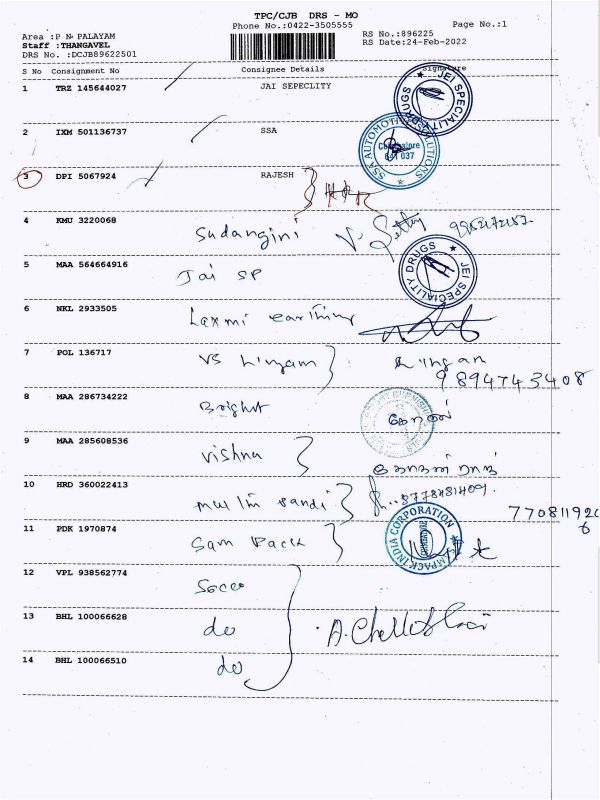 TPC/CJB DRS - MO
Phone No.:0422-3505555
Page No.:1
Area :P N PALAYAM
RS No.:896225
Staff :THANGAVEL
RS Date:24-Feb-2022
DRS No. :DCJB89622501
S No Consignment No Consignee Details Signature
1 TRZ 145644027 JAI SEPECLITY
JEI SPECIALITY DRUGS
2 IXM 501136737 SSA
SSA AUTOMOTIVE SOLUTIONS
Coimbatore
641 037
3 DPI 5067924 RAJESH
4 KMU 3220068 Sudangini
5 MAA 564664916 Jai SP
JEI SPECIALITY DRUGS
6 NKL 2933505 Laxmi earthing
7 POL 136717 VS Lingam Lingan
9894743408
8 MAA 286734222 Bright
9 MAA 285608536 Vishnu
10 HRD 360022413 8778781409
7708119206
11 PDK 1970874 Sam Pack
SAMPACK INDIA CORPORATION
12 VPL 938562774
13 BHL 100066628 do
14 BHL 100066510 do